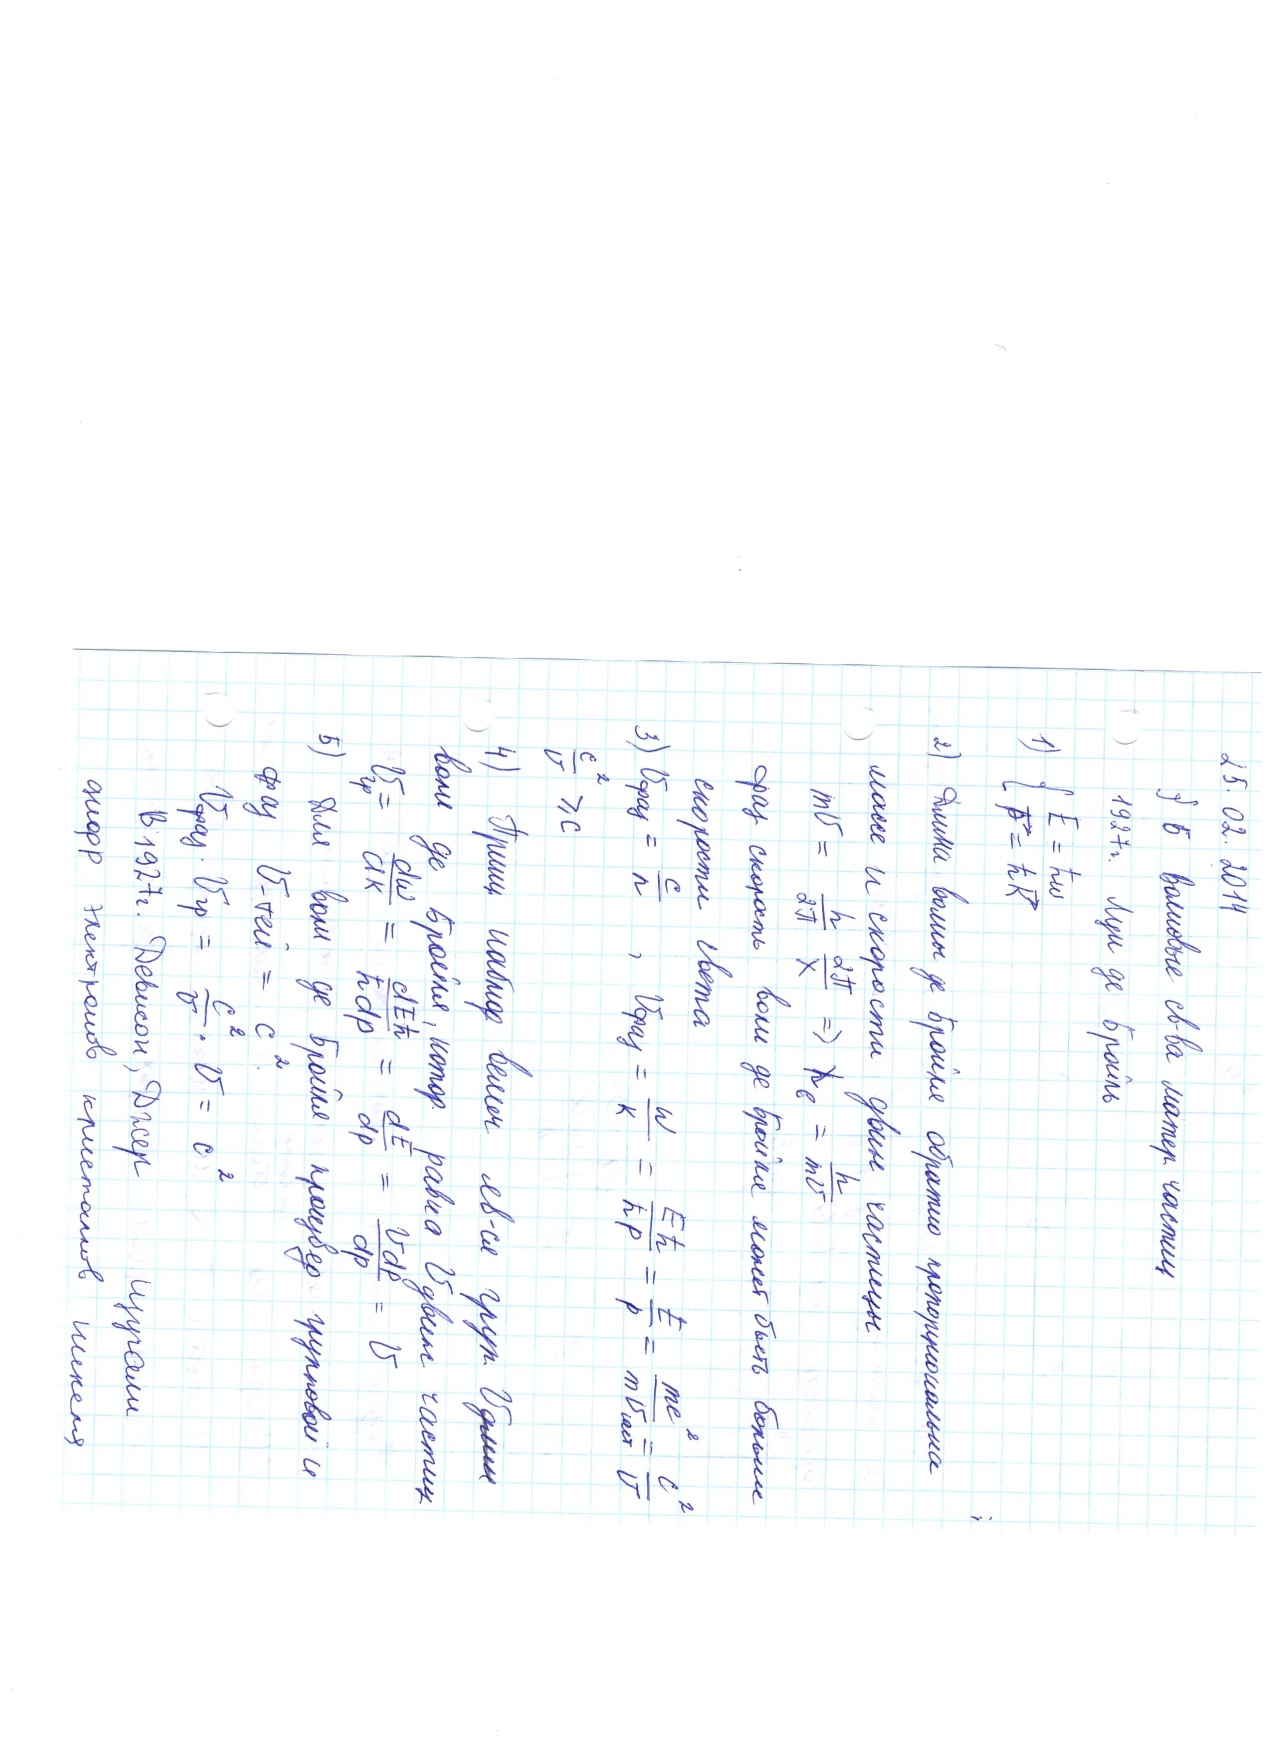 25.02.2014
§ 5 волновые св-ва матер частиц
1927г. Луи де Бройль
1) { E = ħω
p⃗ = ħk⃗
2) Длина волны де Бройля обратно пропорциональна
массе и скорости движ частицы
mv = h/2π 2π/λ => λ_Б = h/mv
фаз скорость волн де Бройля может быть больше
скорости света
3) Vфаз = c/n , Vфаз = w/k = Eħ/ħp = E/p = mc²/mVчаст = c²/v
c²/v ⩾ c
4) Принц наблюд велич яв-ся груп V
волн де Бройля, котор. равна V движ частиц
Vгр = dw/dk = dEħ/ħdp = dE/dp = Vdp/dp = V
5) Для волн де Бройля произвед групповой и
фаз V-тей = c².
Vфаз · Vгр = c²/v · V = c²
В 1927г. Девисон, Джер изучали
дифр электронов кристаллов никеля